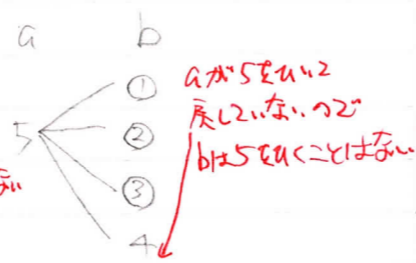 a b
5
①
②
③
4
aが5をひいて
戻していないので
bは5をひくことはない
ない